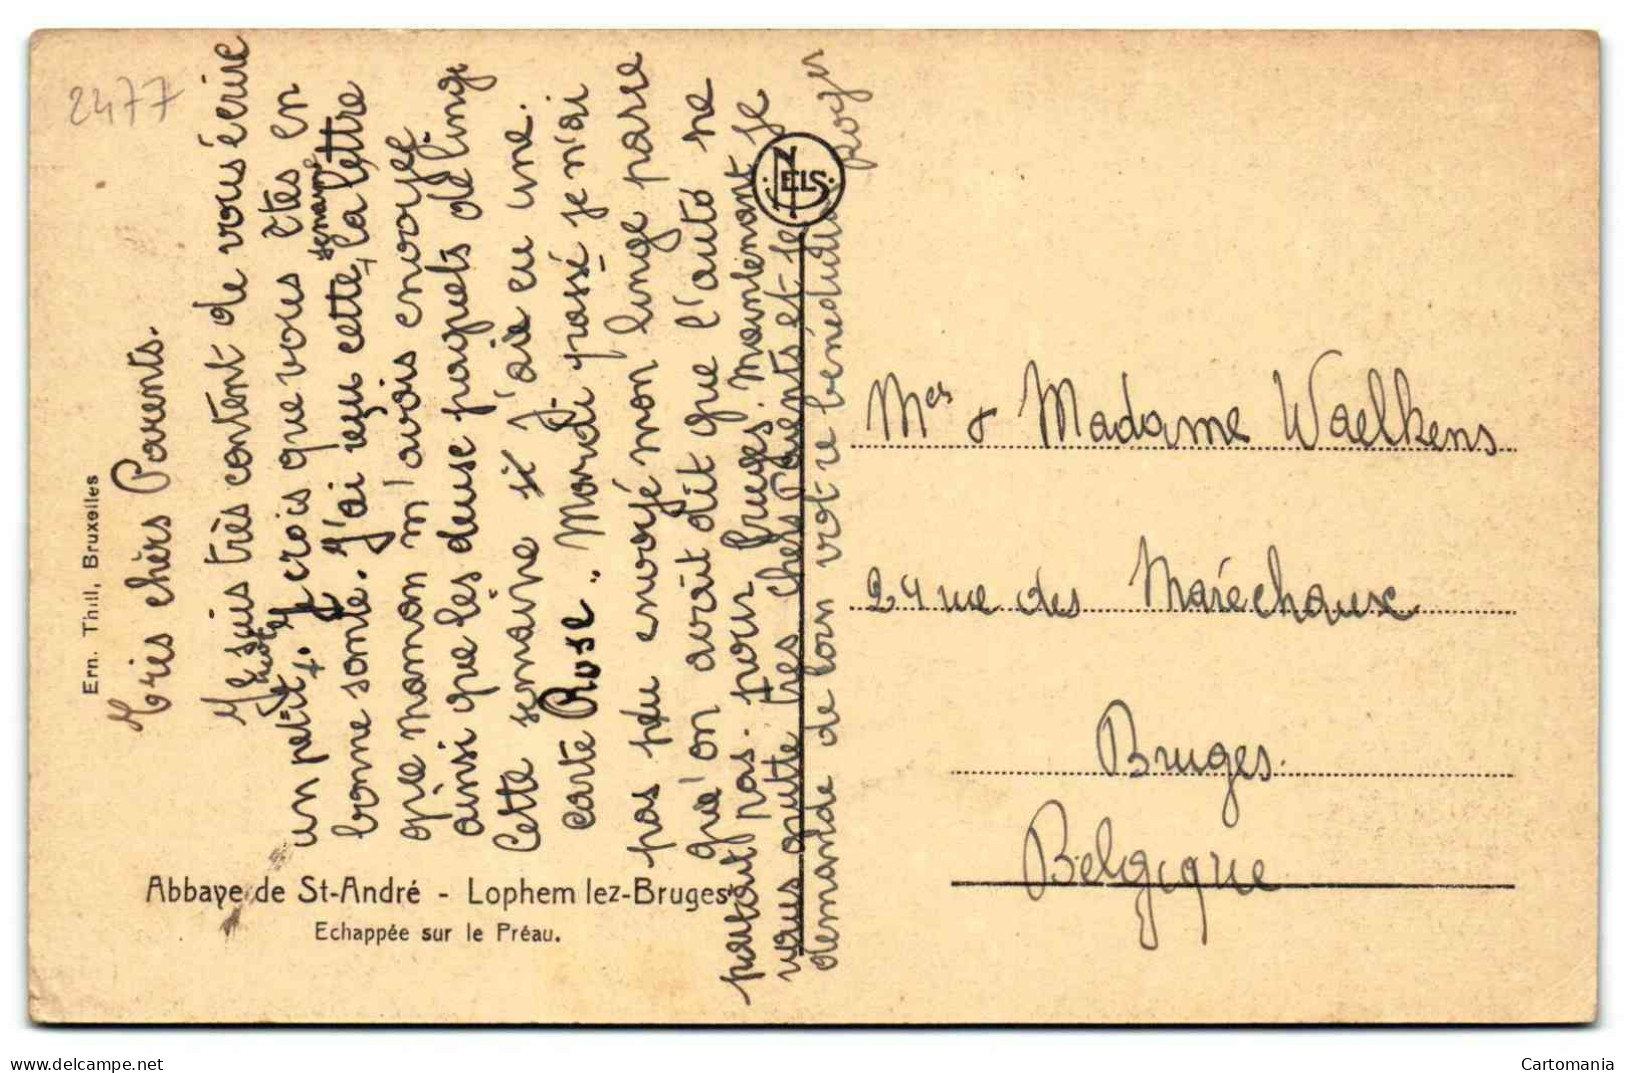 2477
Ern. Thill, Bruxelles
Très chèrs Parents.
Je suis très contend de vous écrire
un petit mot. Je crois que vous êtes en
bonne sante. J'ai reçu cette semaine la lettre
que maman m'avais envoyee
ainsi que les deuse paquets de linge
Cette semaine j'aie eu une
carte Rose. Mardi passé je n'ai
pas peu envoyé mon linge parce
que'on avait dit que l'auto ne
partait pas pour Bruges. Maintenant je
vous quitte tres chès Parents et je
demande de loin votre bénédiction
Roger
NELS
Abbaye de St-André - Lophem lez-Bruges
Echappée sur le Préau.
Mrs & Madame Waelkens
24 rue des Maréchause
Bruges.
Belgique
delcampe.net
Cartomania